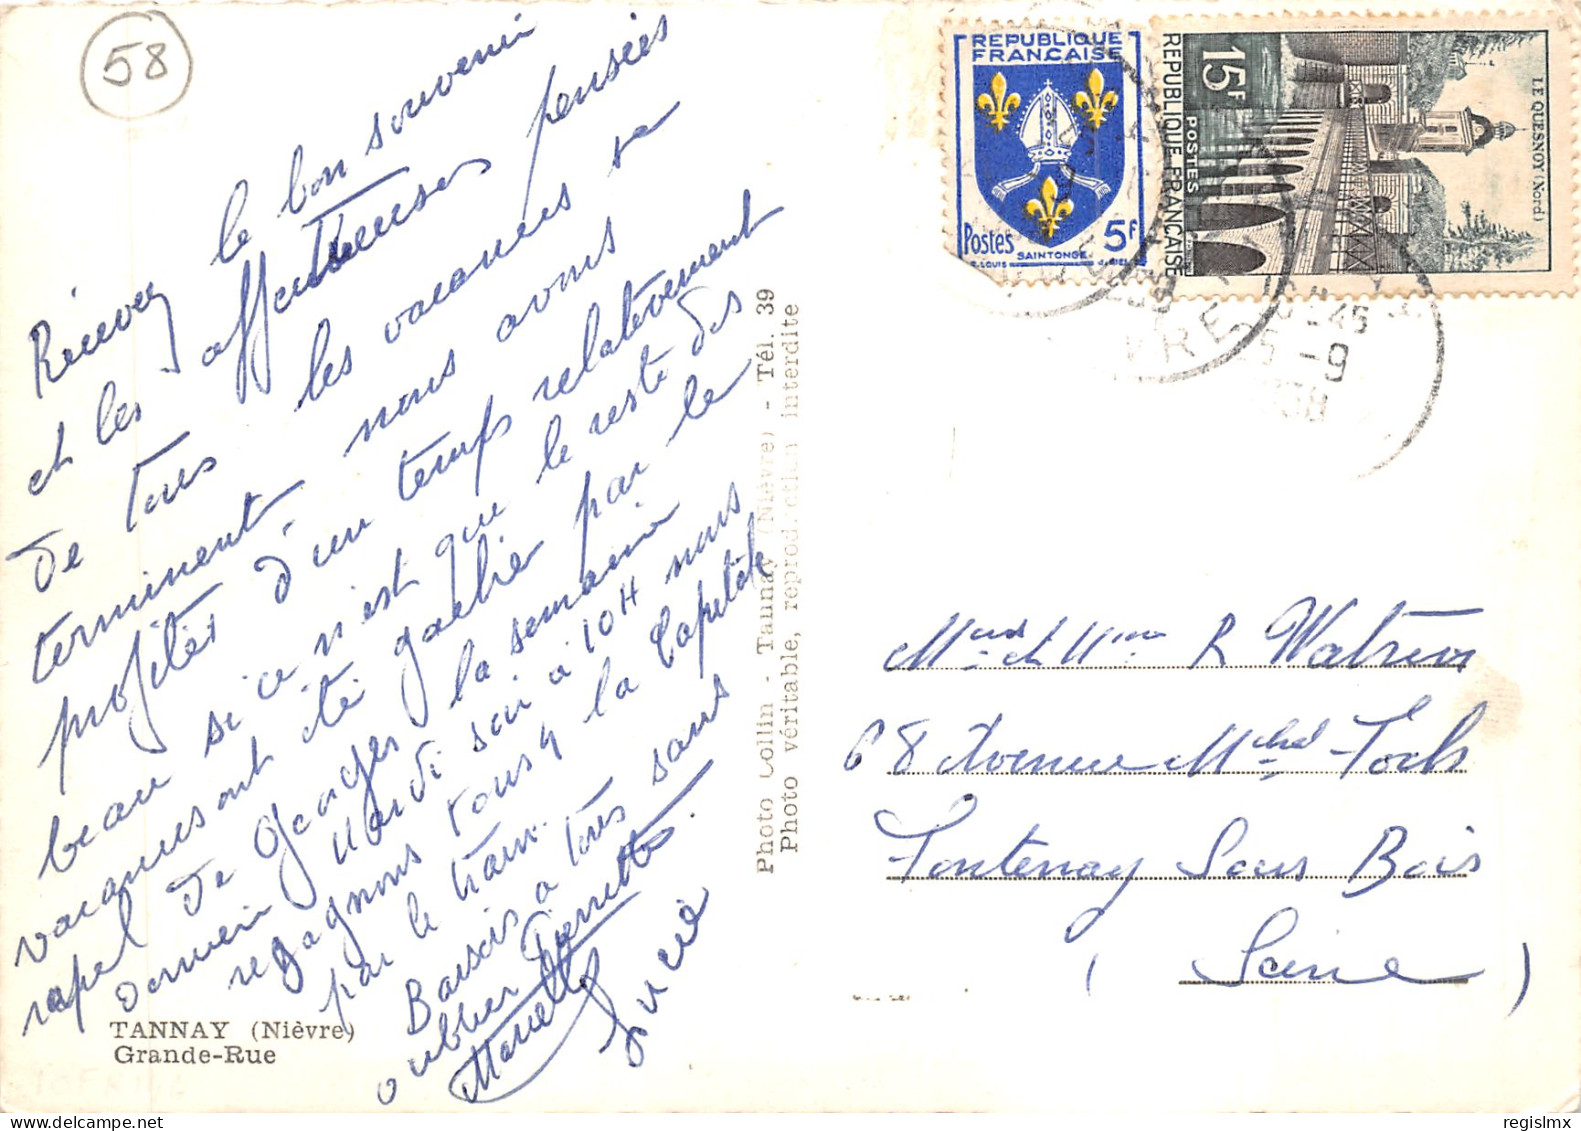 58
Recevez le bon souvenir
et les affectueuses pensées
de tous les vacances se
terminent nous avons
profités d'un temps relativement
beau si ce n'est que le reste des
vacances ont été gachie par le
rapel de Georges la semaine
dernière Mardi soir à 10H nous
regagnons tous 4 la Capitale
par le train.
Baisers a tous sans
oublier Pierrette.
Marcelle
Lucie
TANNAY (Nièvre)
Grande-Rue
Photo Collin - Taunay (Nièvre) - Tél. 39
Photo véritable, reproduction interdite
REPUBLIQUE
FRANCAISE
Postes 5F
SAINTONGE
15F
POSTES
REPUBLIQUE FRANCAISE
LE QUESNOY (Nord)
5 -9
M et Mme R Watrin
68 Avenue Mchal Foch
Fontenay Sous Bois
( Seine )
regislmx